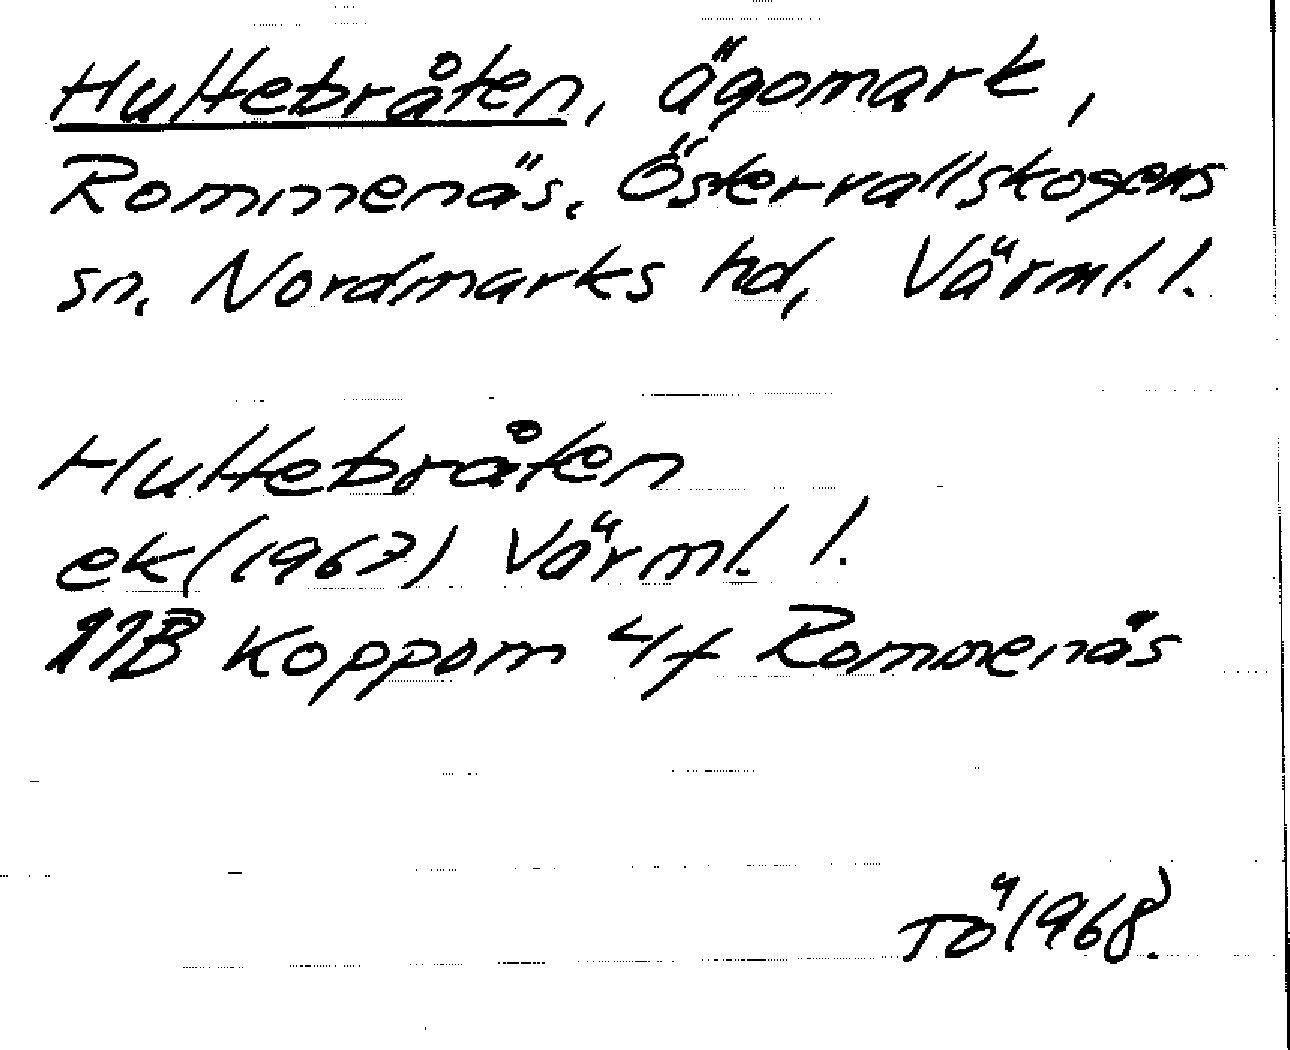 Hultebråten, ägomark,
Rommenäs, Östervallskogens
sn, Nordmarks hd, Värml. l.
Hultebråten
ek (1967) Värml. l.
11B Koppom 4f Rommenäs
TÖ 1968.